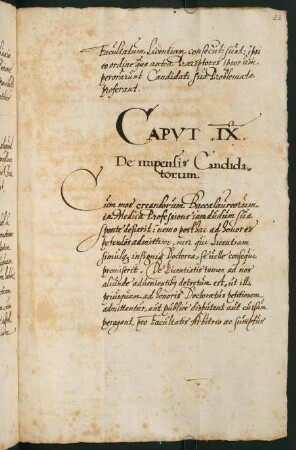 Facultatum Licentiam consecuti sunt; ipsi
eo ordine quo antea Praeceptores ipsorum
perorarunt Candidati sua Problemata
proferant.
CAPVT IX.
De impensis Candida-
torum.
Cum mos creandorum Baccalaureorum
in Medica Professione iamdudum sua
sponte desierit, nemo posthac ad honores
petendos admittitur, nisi qui Licentiam
simul &, insignia Doctorea, se velle consequi
promiserit. De Licentiatis tamen ad nos
aliunde advenientibus decretum est, ut illi
priusquam ad honoris Doctoratus petitionem
admittantur, aut publice disputent aut cursum
peragant, pro Facultatis Arbitrio ac sumptus